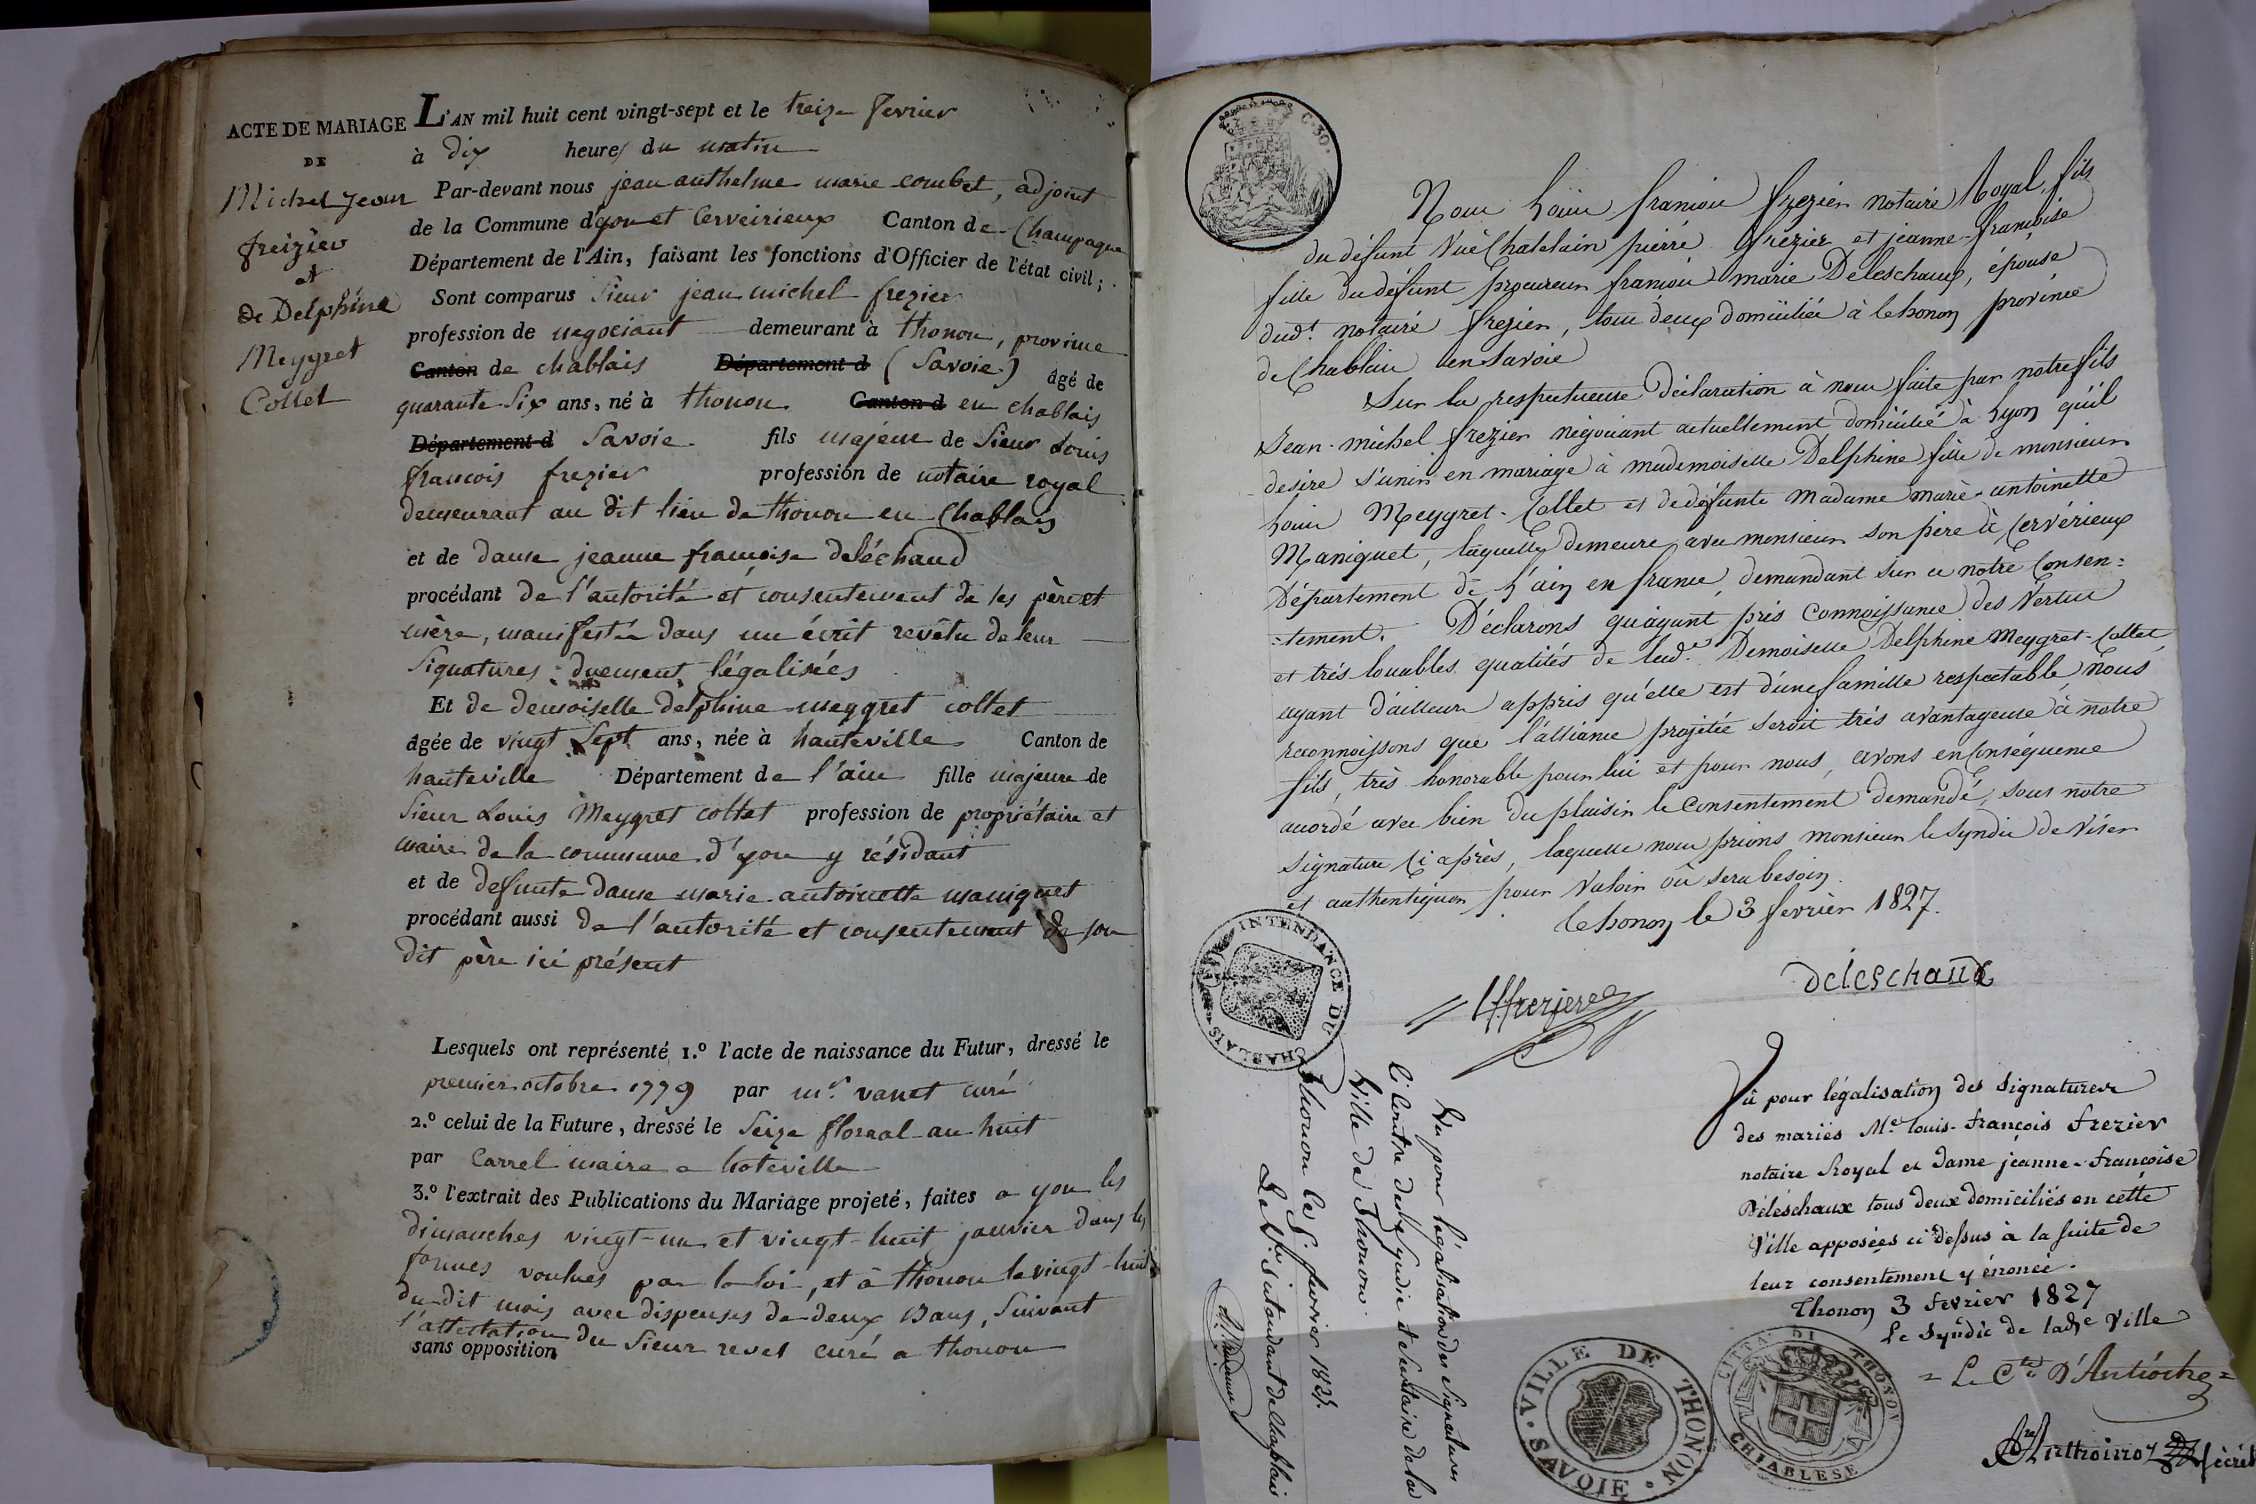 ACTE DE MARIAGE
DE
Michel Jean
freizier
et
de Delphine
Meygret
Collet
L'AN mil huit cent vingt-sept et le treize fevrier
à dix heures du matin
Par-devant nous jean anthelme marie combet, adjoint
de la Commune d'yon et Cerveirieux Canton de Champagne
Département de l'Ain, faisant les fonctions d'Officier de l'état civil;
Sont comparus Sieur jean michel frezier
profession de negociant demeurant à thonon, province
Canton de chablais Département d (Savoie) âgé de
quarante Six ans, né à thonon Canton d en chablais
Département d Savoie fils majeur de Sieur Louis
francois frezier profession de notaire royal
demeurant au dit lieu de thonon en Chablais
et de dame jeanne francoise deléchaud
procédant de l'autorité et consentement de ses père et
mère, manifesté dans un écrit revêtu de leur
Signatures duement légalisées
Et de demoiselle delphine meygret collet
âgée de vingt Sept ans, née à hauteville Canton de
hauteville Département de l'ain fille majeure de
Sieur Louis Meygret collet profession de propriétaire et
maire de la commune d'yon y résidant
et de defunte dame marie antoinette maniquet
procédant aussi de l'autorité et consentement de son
dit père ici présent
Lesquels ont représenté 1.º l'acte de naissance du Futur, dressé le
premier octobre 1779 par mr. vanet curé
2.º celui de la Future, dressé le Seize floreal an huit
par Carrel maire a hoteville
3.º l'extrait des Publications du Mariage projeté, faites a yon les
dimanches vingt-un et vingt-huit janvier dans les
formes voulues par la loi, et à thonon le vingt-huit
du dit mois avec dispenses de deux Bans, Suivant
l'attestation du Sieur revet curé a thonon
sans opposition
C. 30.
Nous Louis francois frezier notaire Royal, fils
du défunt Vice Chatelain pierre frezier et jeanne-françoise
fille du défunt procureur francois marie Deleschaux, épouse
dudt. notaire frezier, tous deux domiciliés à thonon province
de Chablais en Savoie
Sur la respectueuse déclaration à nous faite par notre fils
Jean-michel frezier négociant actuellement domicilié à Lyon qu'il
desire s'unir en mariage à mademoiselle Delphine fille de monsieur
Louis Meygret-Collet et de défunte Madame marie-antoinette
Maniquet, laquelle demeure avec monsieur son père à Cervérieux
Département de L'ain en france, demandant sur ce notre Consen=
=tement. Déclarons qu'ayant pris Connoissance des Vertus
et très louables qualités de lade. Demoiselle Delphine Meygret-Collet,
ayant d'ailleurs appris qu'elle est d'une famille respectable, Nous
reconnoissons que l'alliance projetée seroit très avantageuse à notre
fils, très honorable pour lui et pour nous, avons en Conséquence
accordé avec bien du plaisir le Consentement demandé, sous notre
signature Ci après, laquelle nous prions monsieur le Syndic de Viser
et authentiquer pour Valoir où sera besoin.
thonon le 3 fevrier 1827.
deleschaux
Lffrezier
INTENDANCE DU CHABLAIS
Vû pour légalisation des Signatures
des mariés Me. Louis-François Frezier
notaire Royal et Dame jeanne-Francoise
Déléschaux tous deux domiciliés en cette
Ville apposées ci dessus à la suite de
leur consentement y énoncé.
Thonon 3 Fevrier 1827
Le Syndic de lade Ville
= Le Cte D'Antioche =
Vu pour légalisation des Signatures
Ci Contre des Syndic et Secretaire de la
Ville de Thonon.
Thonon le 5. fevrier 1827.
Le Vi. intendant du chablais
VILLE DE THONON
SAVOIE
CITTA DI THONON
CHIABLESE